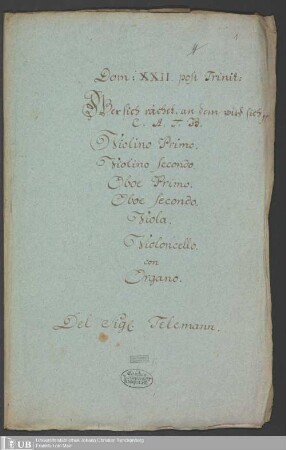 Dom: XXII. post Trinit:
Wer sich rächet, an dem wird sich
C. A. T. B.
Violino Primo.
Violino Secondo.
Oboe Primo.
Oboe Secondo.
Viola.
Violoncello.
con
Organo.
Del Sigl. Telemann.
UB
Universitätsbibliothek Johann Christian Senckenberg
Frankfurt am Main